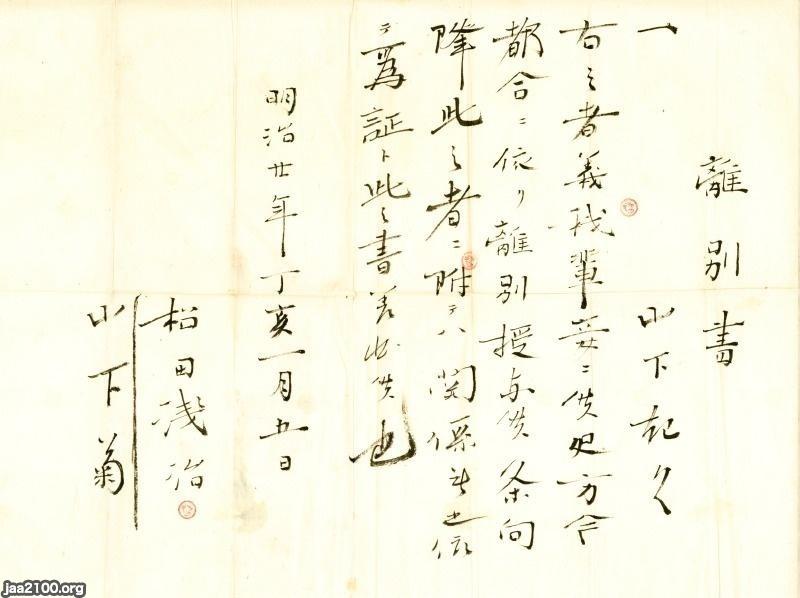 離別書
一 山下起久
右之者義我輩妾ニ候処方今
都合ニ依リ離別授与候条向
降此之者ニ附テハ関係無之依
テ為証ト此之書差出候也
明治廿年丁亥一月五日
松田浅治
山下菊
jaa2100.org